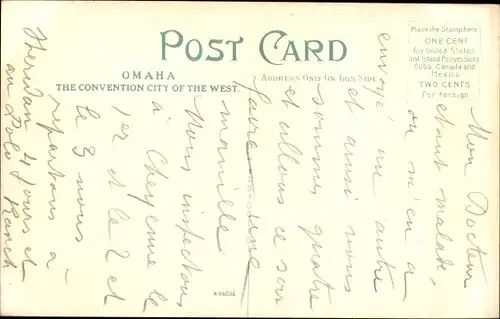 POST CARD
OMAHA
THE CONVENTION CITY OF THE WEST.
ADDRESS ONLY ON THIS SIDE
Place the Stamp here
ONE CENT
for United States
and Island Possessions
Cuba, Canada and
Mexico
TWO CENTS
For Foreign
Mon Docteur
étant malade,
on m'en a
envoyé un autre
et ainsi nous
sommes quatre
et allons ce soir
faire une
manille
Nous inspectons
à Cheyenne le
1er et le 2 et
le 3 nous
repartons à
Sheridan 4 jours et
au Lolo Ranch
A-56025